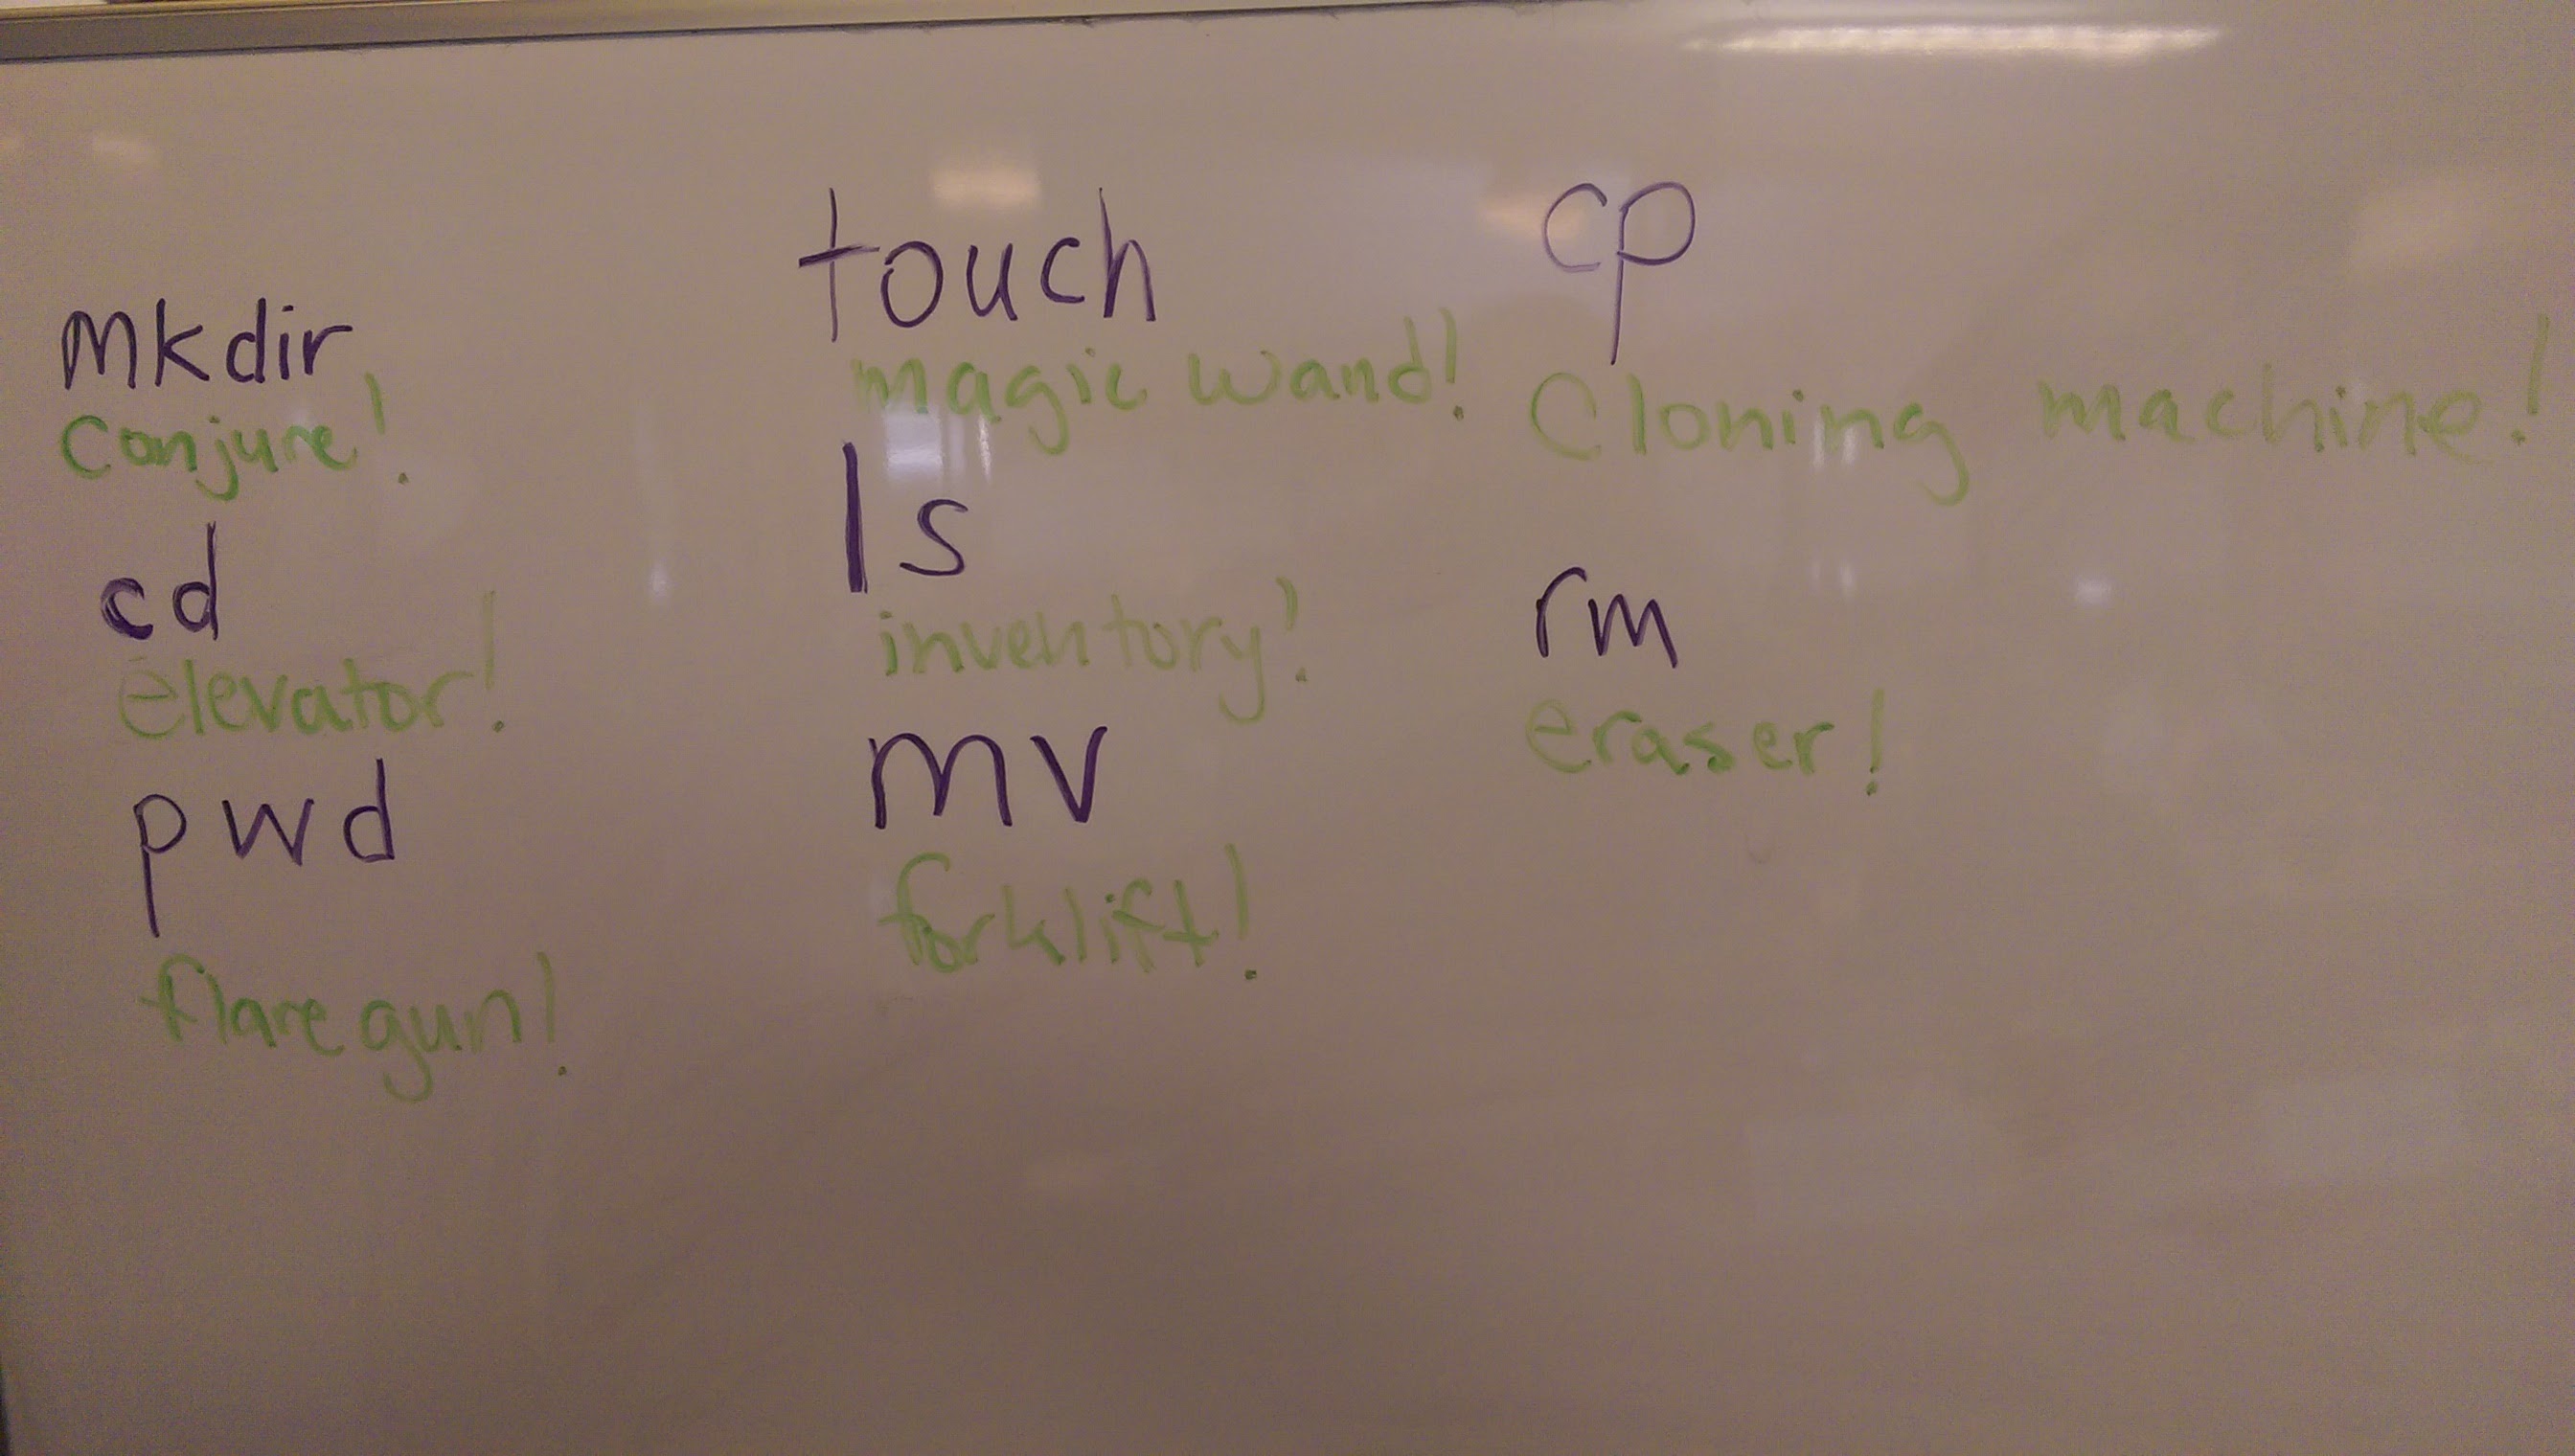 mkdir
Conjure!
cd
elevator!
pwd
flare gun!
touch
magic wand!
ls
inventory!
mv
forklift!
cp
Cloning machine!
rm
eraser!